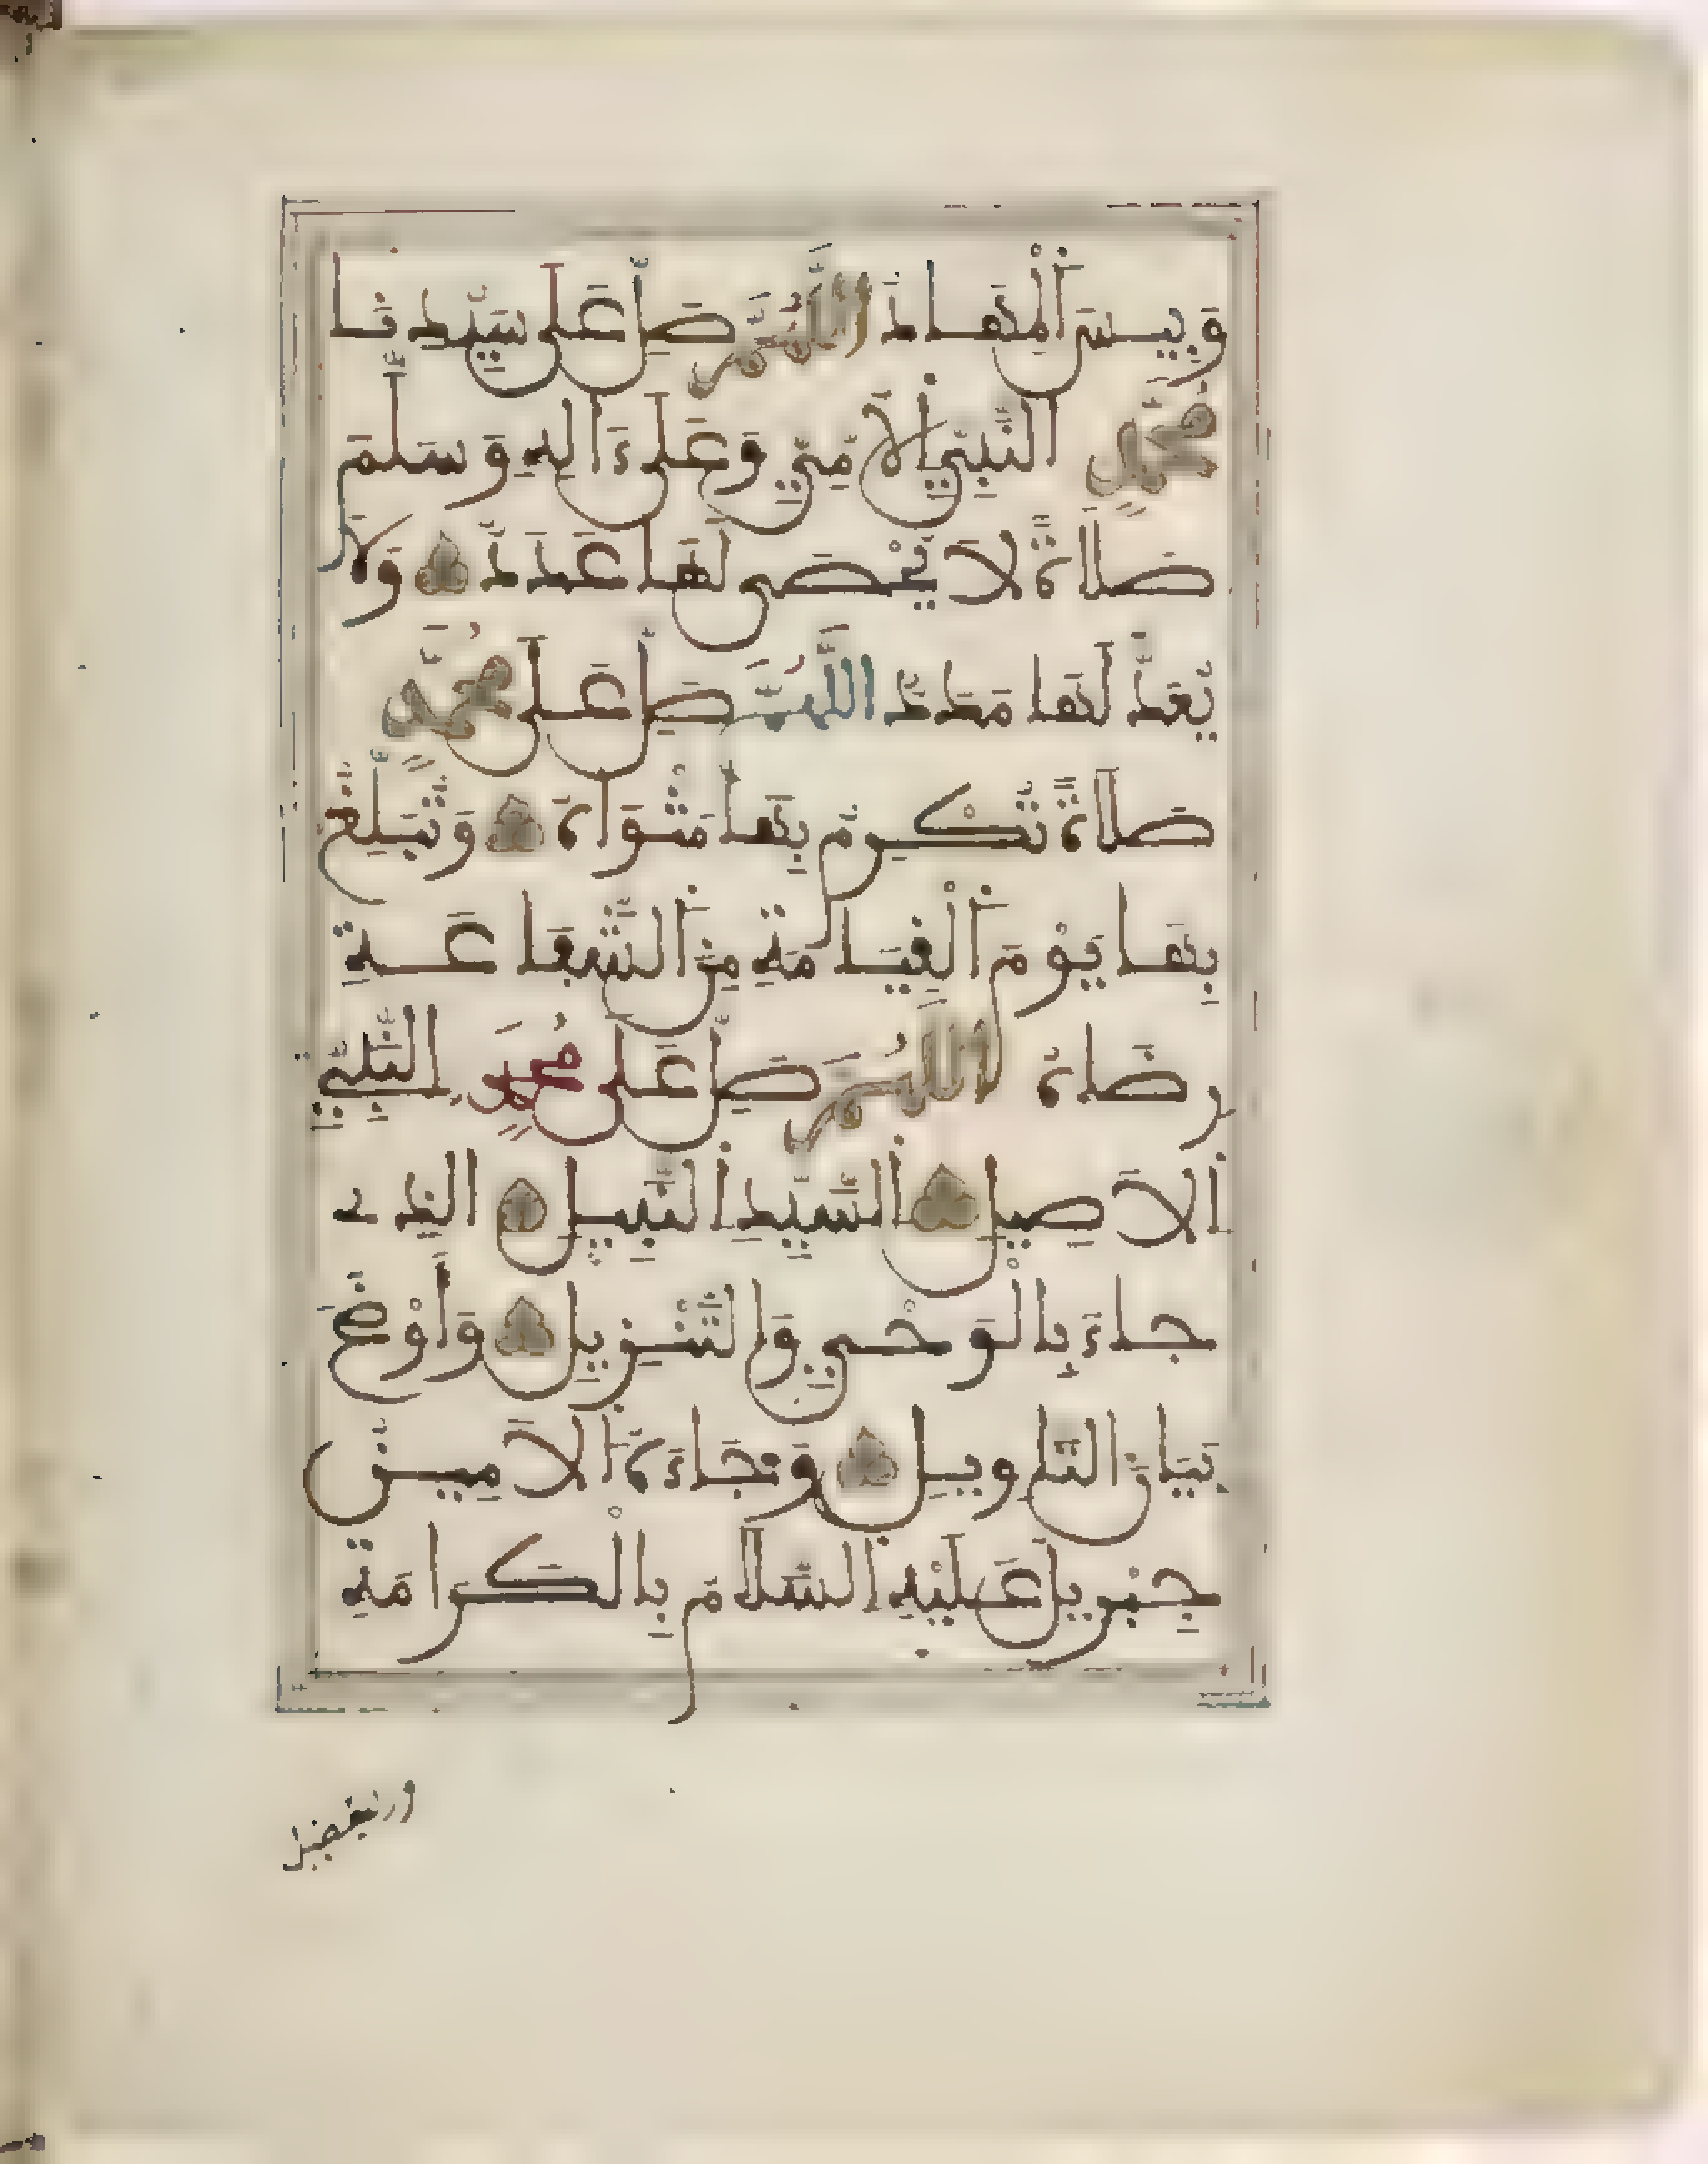 وَبِيسَ ٱلْمِهَادُ اللَّهُمَّ صَلِّ عَلَى سَيِّدِنَا
مُحَمَّدٍ النَّبِيِّ ٱلْأُمِّيِّ وَعَلَى ءَالِهِ وَسَلِّمْ
صَلَاةً لَا يُحْصَى لَهَا عَدَدٌ وَلَا
يُعَدُّ لَهَا مَدَدٌ اللَّهُمَّ صَلِّ عَلَى مُحَمَّدٍ
صَلَاةً تُكْرِمُ بِهَا مَثْوَاهُ وَتُبَلِّغُ
بِهَا يَوْمَ ٱلْقِيَامَةِ مِنَ ٱلشَّفَاعَةِ
رِضَاهُ اللَّهُمَّ صَلِّ عَلَى مُحَمَّدٍ النَّبِيِّ
ٱلْأَصِيلِ ٱلسَّيِّدِ ٱلنَّبِيلِ الذِي
جَاءَ بِالْوَحْيِ وَالتَّنْزِيلِ وَأَوْضَحَ
بَيَانَ التَّاوِيلِ وَجَاءَهُ الْأَمِينُ
جِبْرِيلُ عَلَيْهِ السَّلَامُ بِالْكَرَامَةِ